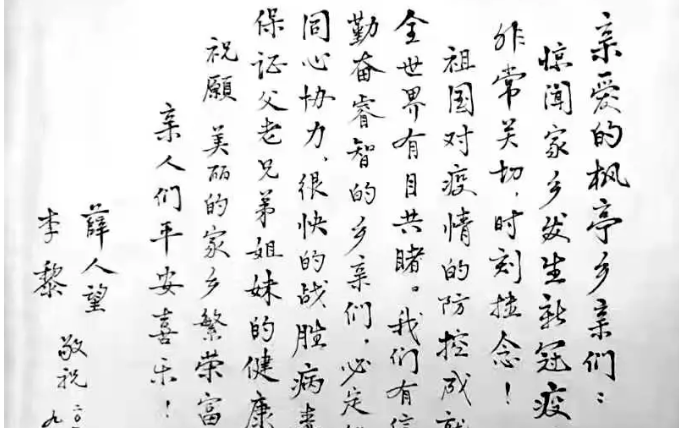 亲爱的枫亭乡亲们：
惊闻家乡发生新冠疫
非常关切，时刻挂念！
祖国对疫情的防控成就
全世界有目共睹。我们有信
勤奋睿智的乡亲们，必定
同心协力，很快的战胜病毒
保证父老兄弟姐妹的健康
祝愿 美丽的家乡繁荣富
亲人们平安喜乐！
薛人望
李黎
敬祝
二〇
九